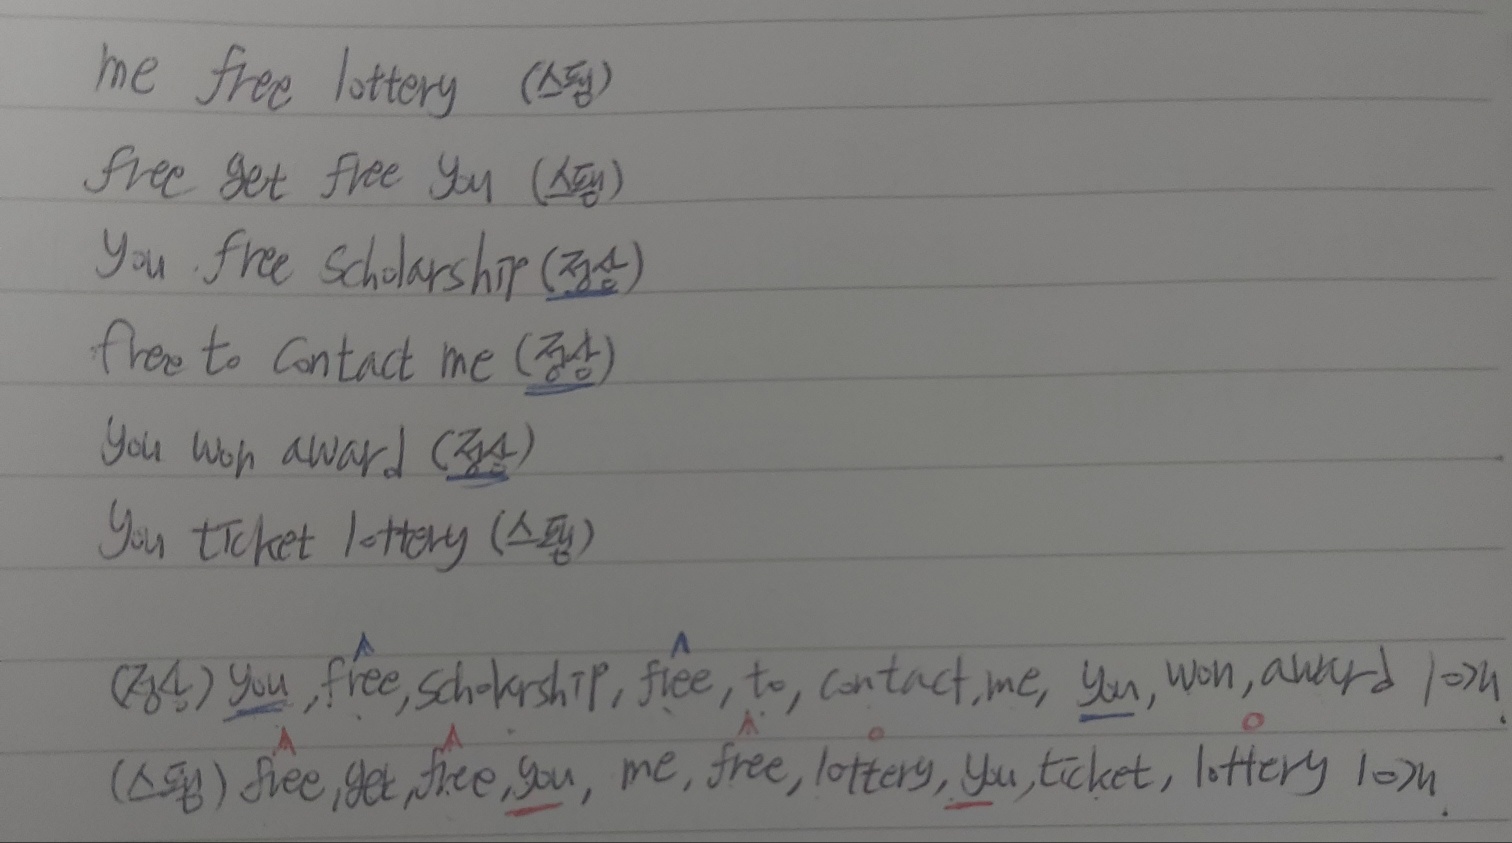 me free lottery (스팸)
free get free you (스팸)
you free scholarship (정상)
free to contact me (정상)
you won award (정상)
you ticket lottery (스팸)
(정상) you, free, scholarship, free, to, contact, me, you, won, award 10개
(스팸) free, get, free, you, me, free, lottery, you, ticket, lottery 10개